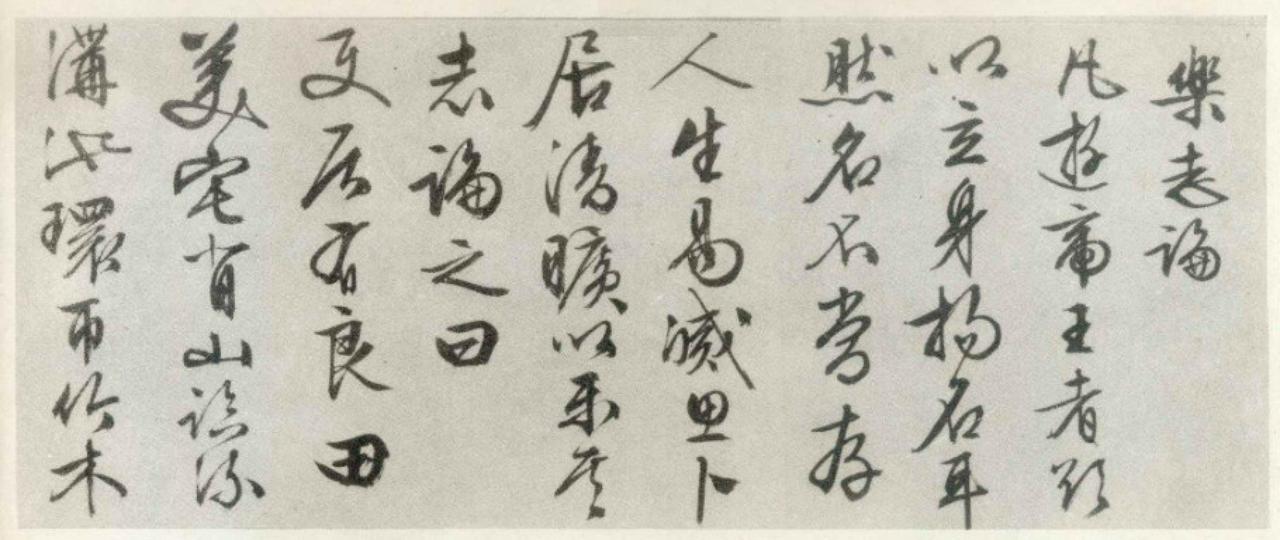 樂志論
凡遊帝王者欲
以立身揚名耳
然名不常存
人生易滅思卜
居清曠以樂其
志論之曰
使居有良田
美宅背山臨流
溝池環帀竹木